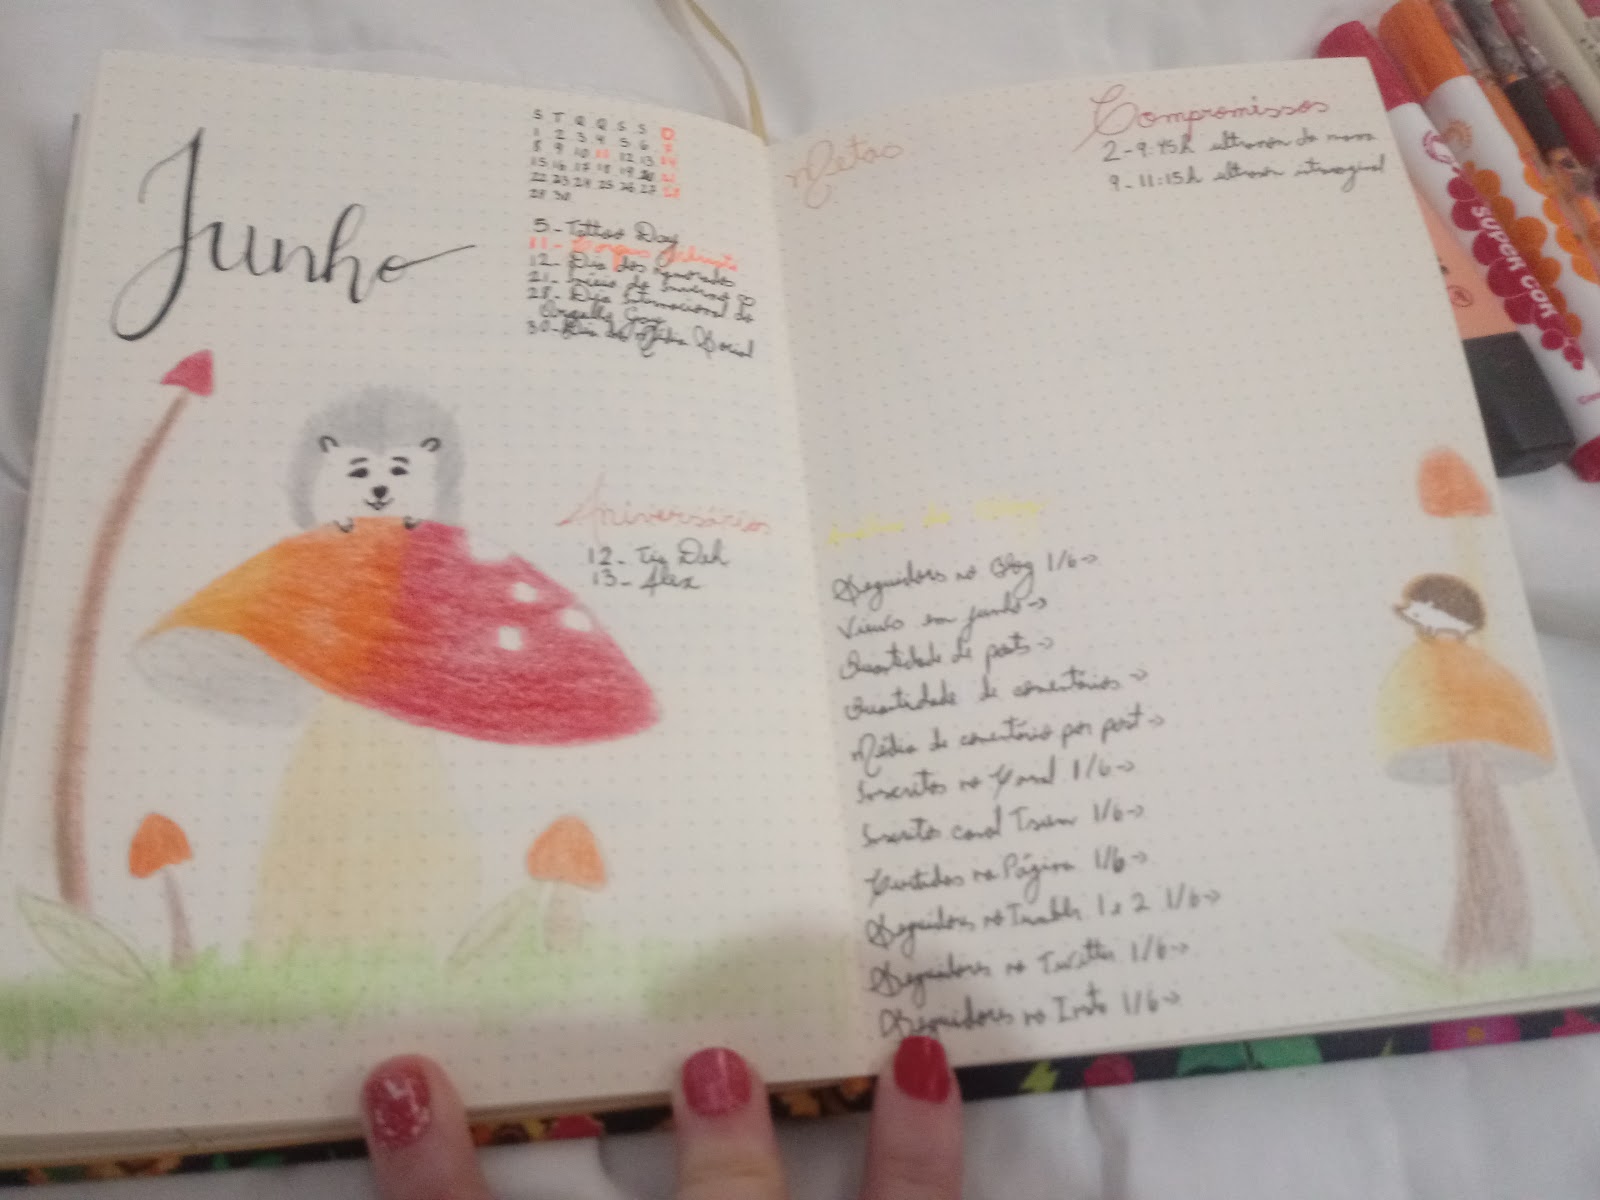 Junho
S T Q Q S S D
1 2 3 4 5 6 7
8 9 10 11 12 13 14
15 16 17 18 19 20 21
22 23 24 25 26 27 28
29 30
5 - Tattoo Day
11 - Corpus Christi
12 - Dia dos namorados
21 - Início do Inverno
28 - Dia Internacional do
Orgulho Gay
30 - Dia da Mídia Social
Aniversários
12 - Tia Deh
13 - Alex
Metas
Compromissos
2 - 9:45h ultrassom da
9 - 11:15h ultrassom
Análise do Blog
Seguidores no Blog 1/6->
Views em junho->
Quantidade de posts->
Quantidade de comentários ->
Média de comentário por post->
Inscritos no Canal 1/6->
Inscritos canal 1/6->
Curtidas na Página 1/6->
Seguidores no Tumblr 1 e 2 1/6->
Seguidores no Twitter 1/6->
Seguidores no Insta 1/6->
SUPER COR